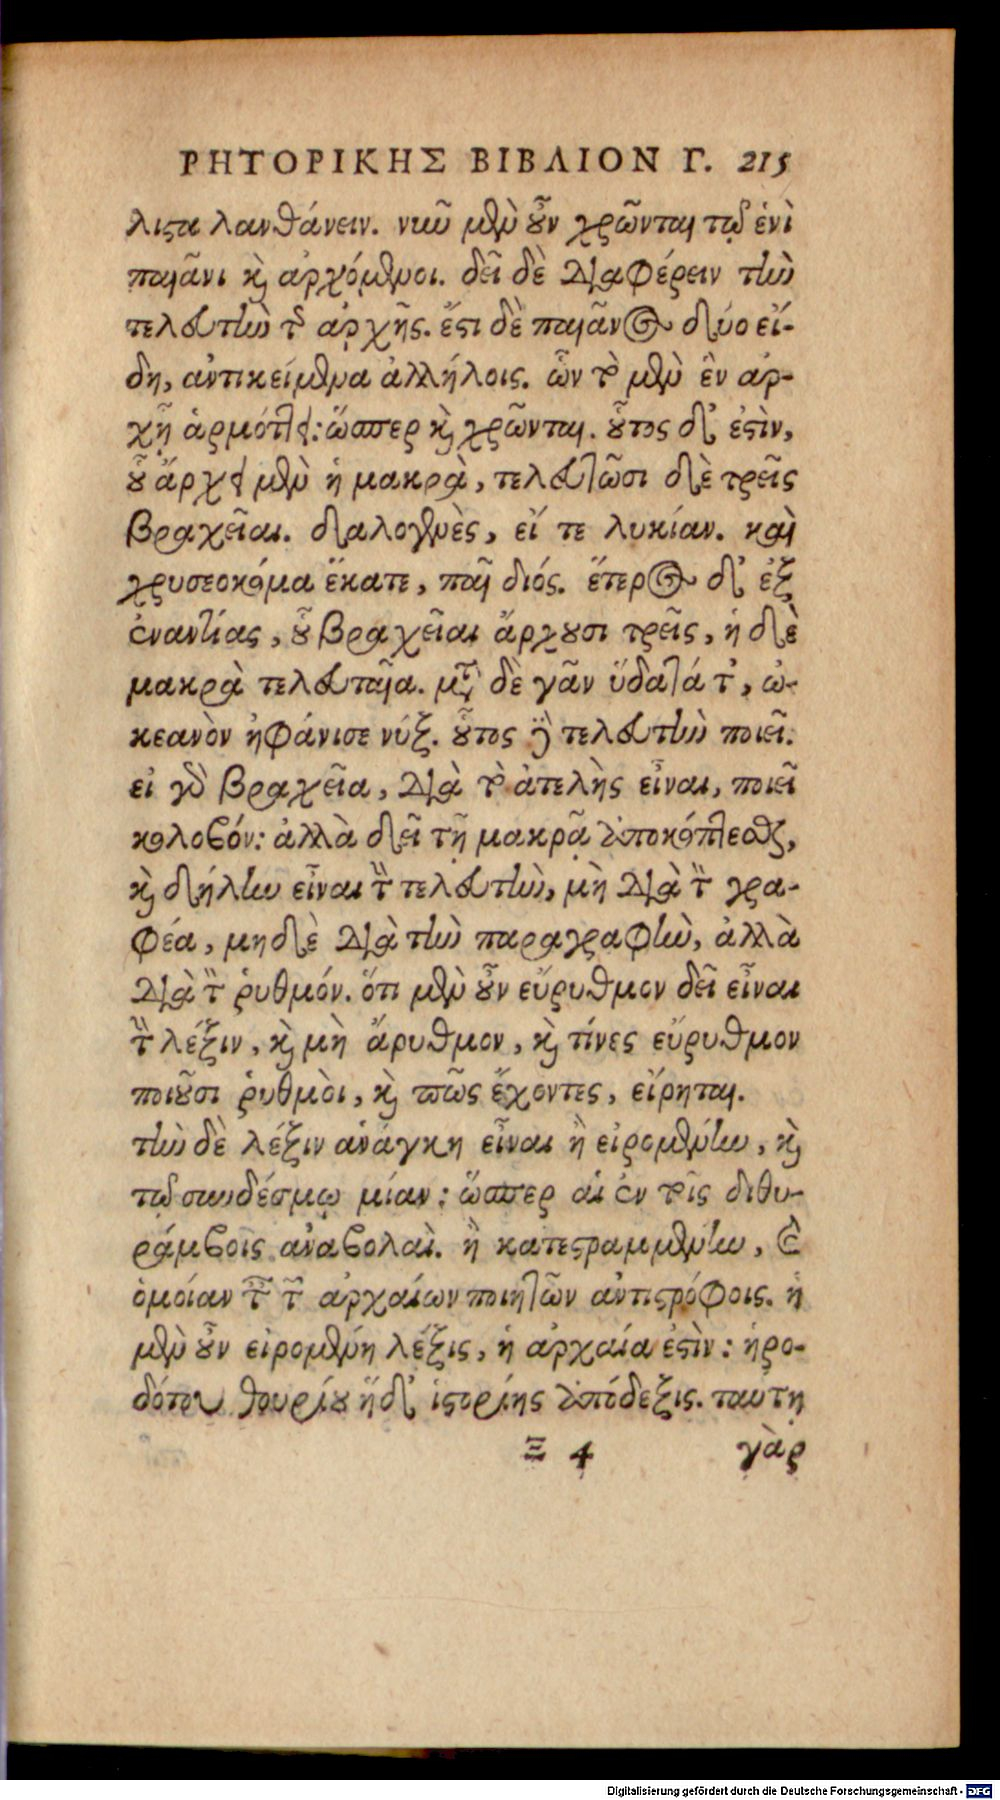 ΡΗΤΟΡΙΚΗΣ ΒΙΒΛΙΟΝ Γ. 215
λιςα λανθάνειν. νῦν μὲν οὖν χρῶνται τῷ ἑνὶ
παιᾶνι καὶ ἀρχόμενοι. δεῖ δὲ διαφέρειν τὴν
τελευτὴν τῆς ἀρχῆς. ἔςι δὲ παιᾶνος δύο εἴ-
δη, ἀντικείμενα ἀλλήλοις. ὧν τὸ μὲν ἓν ἀρ-
χῇ ἁρμόττει: ὥσπερ καὶ χρῶνται. οὗτος δ' ἐςὶν,
οὗ ἄρχει μὲν ἡ μακρὰ, τελευτῶσι δὲ τρεῖς
βραχεῖαι. δαλογενὲς, εἴ τε λυκίαν. καὶ
χρυσεοκόμα ἕκατε, παῖ διός. ἕτερος δ' ἐξ
ἐναντίας, οὗ βραχεῖαι ἄρχουσι τρεῖς, ἡ δὲ
μακρὰ τελευταῖα. μετὰ δὲ γᾶν ὕδατά τ', ὠ-
κεανὸν ἠφάνισε νύξ. οὗτος δὲ τελευτὴν ποιεῖ.
εἰ γὰρ βραχεῖα, διὰ τὸ ἀτελὴς εἶναι, ποιεῖ
κολοβόν: ἀλλὰ δεῖ τῇ μακρᾷ ἀποκόπτεσθαι,
καὶ δήλην εἶναι τὴν τελευτὴν, μὴ διὰ τὸν γρα-
φέα, μηδὲ διὰ τὴν παραγραφὴν, ἀλλὰ
διὰ τὸν ῥυθμόν. ὅτι μὲν οὖν εὔρυθμον δεῖ εἶναι
τὴν λέξιν, καὶ μὴ ἄρυθμον, καὶ τίνες εὔρυθμον
ποιοῦσι ῥυθμὸι, καὶ πῶς ἔχοντες, εἴρηται.
τὴν δὲ λέξιν ἀνάγκη εἶναι ἢ εἰρομένην, καὶ
τῷ συνδέσμῳ μίαν: ὥσπερ αἱ ἐν τοῖς διθυ-
ράμβοις ἀναβολαὶ. ἢ κατεςραμμένην, καὶ
ὁμοίαν ταῖς τῶν ἀρχαίων ποιητῶν ἀντιςρόφοις. ἡ
μὲν οὖν εἰρομένη λέξις, ἡ ἀρχαία ἐςὶν: ἡρο-
δότου θουρίου ἥδ' ἱςορίης ἀπόδεξις. ταύτῃ
Ξ 4 γὰρ
Digitalisierung gefördert durch die Deutsche Forschungsgemeinschaft - DFG